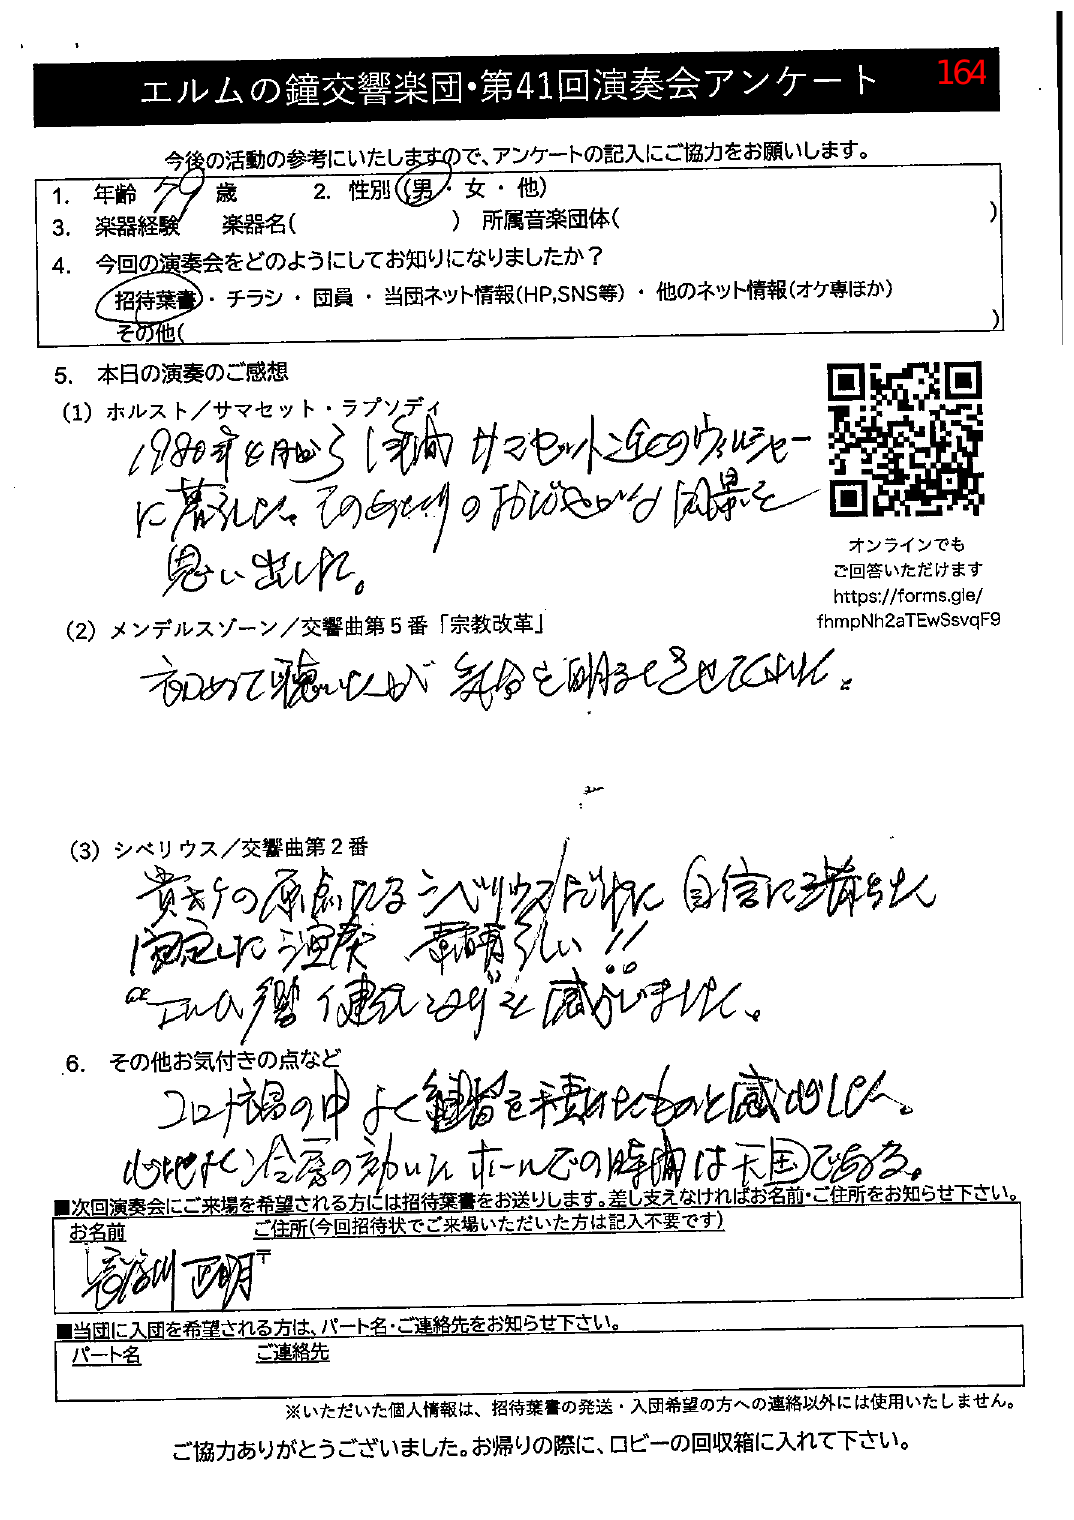 エルムの鐘交響楽団・第41回演奏会アンケート
164
今後の活動の参考にいたしますので、アンケートの記入にご協力をお願いします。
1. 年齢 79 歳 2. 性別 (男・女・他)
3. 楽器経験 楽器名( ) 所属音楽団体( )
4. 今回の演奏会をどのようにしてお知りになりましたか？
招待葉書・チラシ・団員・当団ネット情報(HP,SNS等)・他のネット情報(オケ専ほか)
その他( )
5. 本日の演奏のご感想
(1) ホルスト／サマセット・ラプソディ
1980年4月から1年間 サマセット近くのウィルシャー
に暮らした。そのあたりのおだやかな風景を
思い出した。
オンラインでも
ご回答いただけます
https://forms.gle/
fhmpNh2aTEwSsvqF9
(2) メンデルスゾーン／交響曲第５番「宗教改革」
初めて聴いたが 気分を明るくさせてくれた。
(3) シベリウス／交響曲第２番
貴オケの原点たるシベリウスだけに 自信に満ちた
安定した演奏 素晴らしい!!
"エルム響 健在なり"を感じました。
6. その他お気付きの点など
コロナ禍の中 よく練習を積けたものと感心した。
心地よい冷房の効いたホールでの時間は天国である。
■次回演奏会にご来場を希望される方には招待葉書をお送りします。差し支えなければお名前・ご住所をお知らせ下さい。
お名前 ご住所(今回招待状でご来場いただいた方は記入不要です)
川 正明 〒
■当団に入団を希望される方は、パート名・ご連絡先をお知らせ下さい。
パート名 ご連絡先
※いただいた個人情報は、招待葉書の発送・入団希望の方への連絡以外には使用いたしません。
ご協力ありがとうございました。お帰りの際に、ロビーの回収箱に入れて下さい。